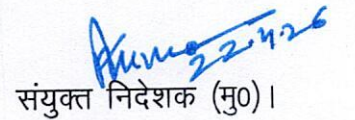 22.4.26
संयुक्त निदेशक (मु0)।